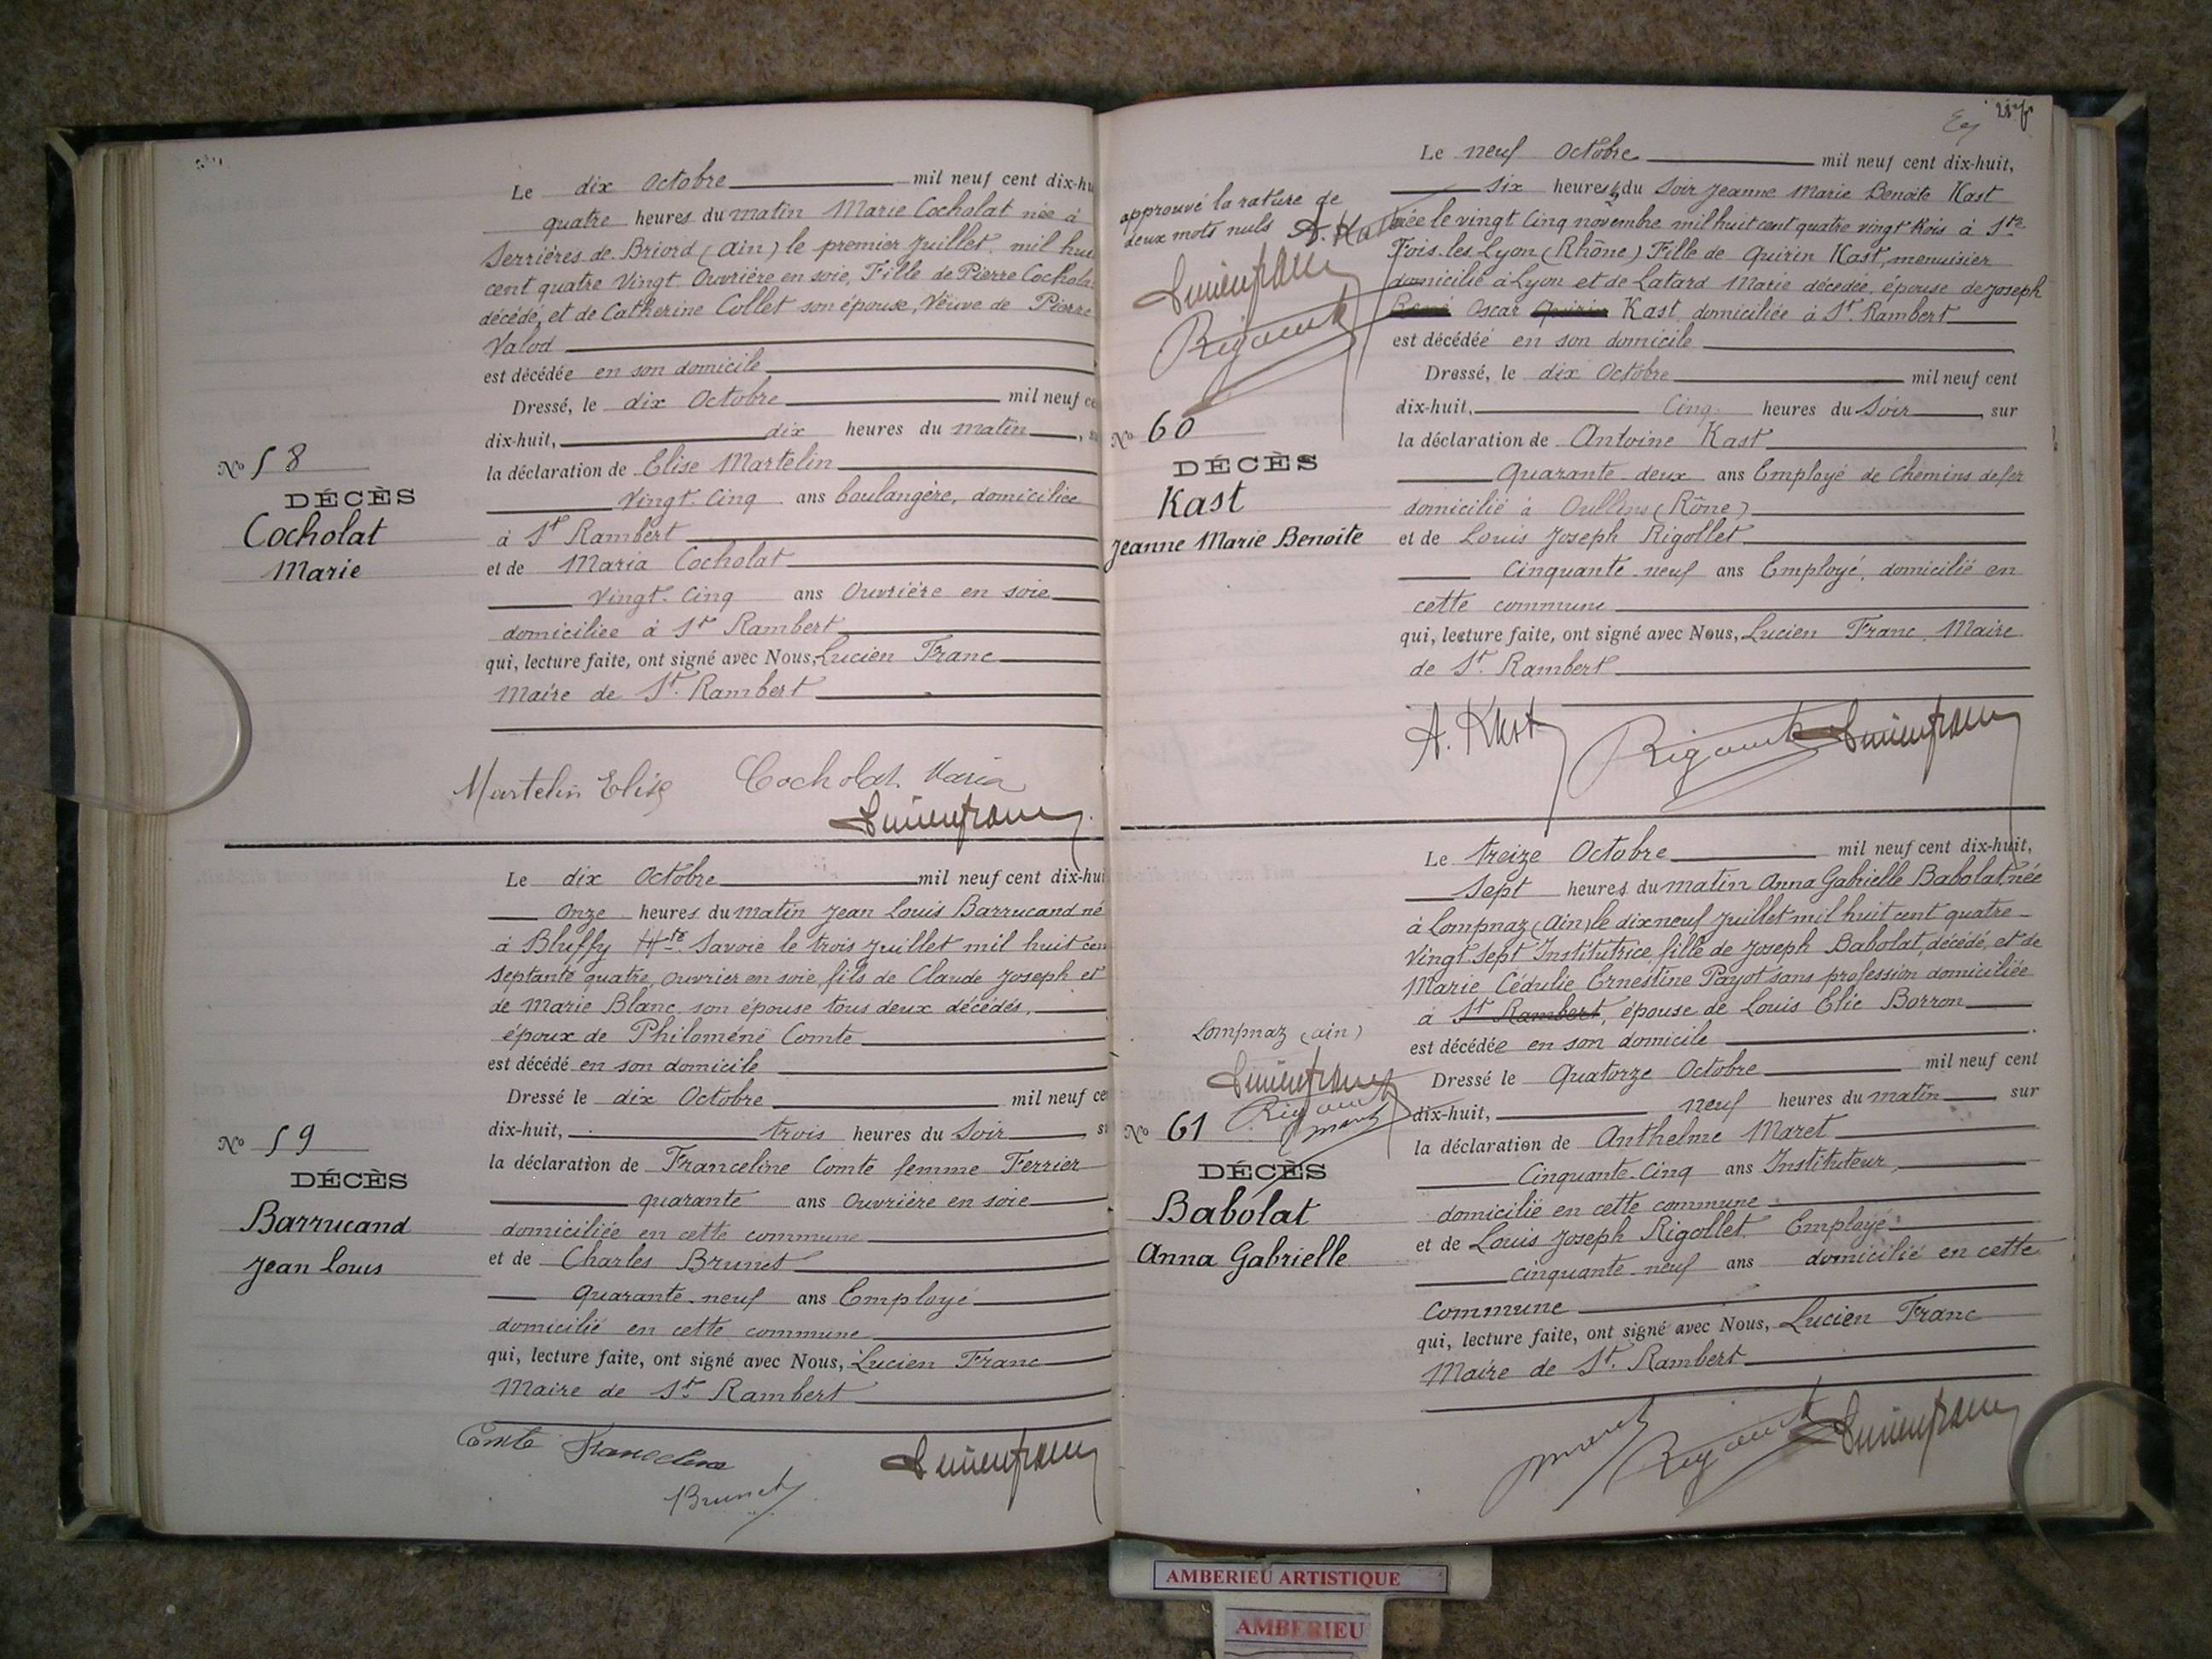 Le dix Octobre mil neuf cent dix-hu
quatre heures du matin Marie Cocholat née à
Serrières de Briord (Ain) le premier Juillet mil hui
cent quatre Vingt Ouvrière en soie, Fille de Pierre Cochola
décédé, et de Catherine Collet son épouse, Veuve de Pierre
Valod
est décédée en son domicile
Dressé, le dix Octobre mil neuf ce
dix-huit, dix heures du matin, s
No 58
la déclaration de Elise Martelin
DÉCÈS
Vingt-Cinq ans boulangère, domiciliée
Cocholat
à St Rambert
Marie
et de Maria Cocholat
Vingt-Cinq ans Ouvrière en soie
domiciliée à St Rambert
qui, lecture faite, ont signé avec Nous, Lucien Franc
Maire de St. Rambert
Martelin Elise Cocholat Maria
Lucien franc
Le dix Octobre mil neuf cent dix-hui
Onze heures du matin Jean Louis Barrucand né
à Bluffy Hte Savoie le trois Juillet mil huit cen
septante quatre, ouvrier en soie, fils de Claude Joseph et
de Marie Blanc son épouse tous deux décédés,
époux de Philomène Comte
est décédé en son domicile
Dressé le dix Octobre mil neuf ce
dix-huit, trois heures du Soir, s
No 59
la déclaration de Franceline Comte femme Ferrier
DÉCÈS
quarante ans Ouvrière en soie
Barrucand
domiciliée en cette commune
Jean Louis
et de Charles Brunet
Quarante-neuf ans Employé
domicilié en cette commune
qui, lecture faite, ont signé avec Nous, Lucien Franc
Maire de St Rambert
Comte Franceline
Brunet
Lucien franc
Le neuf Octobre mil neuf cent dix-huit,
six heures du Soir Jeanne Marie Benoite Kast
née le vingt cinq novembre mil huit cent quatre vingt trois à Ste
Fois-les-Lyon (Rhône) Fille de Quirin Kast, menuisier
domicilié à Lyon et de Latard Marie décédée, épouse de Joseph
René Oscar Quirin Kast, domiciliée à St. Rambert
est décédée en son domicile
approuvé la rature de
deux mots nuls A. Kast
Lucien franc
Rigollet
Dressé, le dix Octobre mil neuf cent
dix-huit, Cinq heures du Soir, sur
No 60
la déclaration de Antoine Kast
DÉCÈS
Quarante-deux ans Employé de Chemins de fer
Kast
domicilié à Oullins (Rône)
Jeanne Marie Benoite
et de Louis Joseph Rigollet
Cinquante-neuf ans Employé, domicilié en
cette commune
qui, lecture faite, ont signé avec Nous, Lucien Franc, Maire
de St. Rambert
A. Kast Rigollet Lucien franc
Le treize Octobre mil neuf cent dix-huit,
Sept heures du matin Anna Gabrielle Babolat, née
à Lompnaz (Ain) le dix neuf Juillet mil huit cent quatre
Vingt sept Institutrice, fille de Joseph Babolat, décédé, et de
Marie Cédulie Ernestine Payot sans profession domiciliée
à St Rambert, épouse de Louis Elie Borron
est décédée en son domicile
Lompnaz (ain)
Lucien franc
Rigollet
Maret
Dressé le Quatorze Octobre mil neuf cent
dix-huit, neuf heures du matin, sur
No 61
la déclaration de Anthelme Maret
DÉCÈS
Cinquante-Cinq ans Instituteur,
Babolat
domicilié en cette commune
Anna Gabrielle
et de Louis Joseph Rigollet Employé
cinquante-neuf ans domicilié en cette
Commune
qui, lecture faite, ont signé avec Nous, Lucien Franc
Maire de St. Rambert
Maret Rigollet Lucien franc
AMBERIEU ARTISTIQUE
AMBERIEU